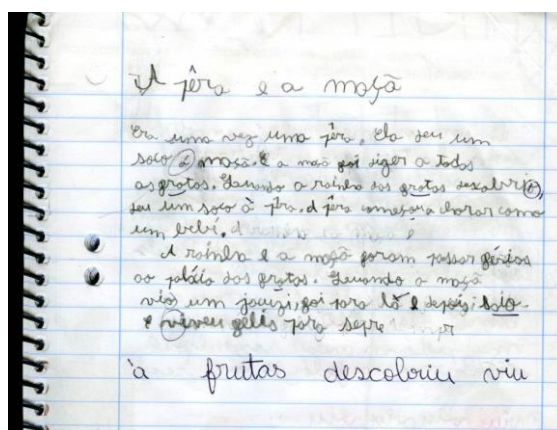 A pêra e a maçã
Era uma vez uma pêra. Ela deu um
soco a maçã. E a maçã foi dizer a todas
as grotas. Quando a rainha das grotas descobrio,
deu um soco à pêra. A pêra começou a chorar como
um bebé.
A rainha e a maçã foram passar férias
ao palácio das grotas. Quando a maçã
viò um jacuzi, foi para lá e depois saio
e viveu felis para sepre
à frutas descobriu viu